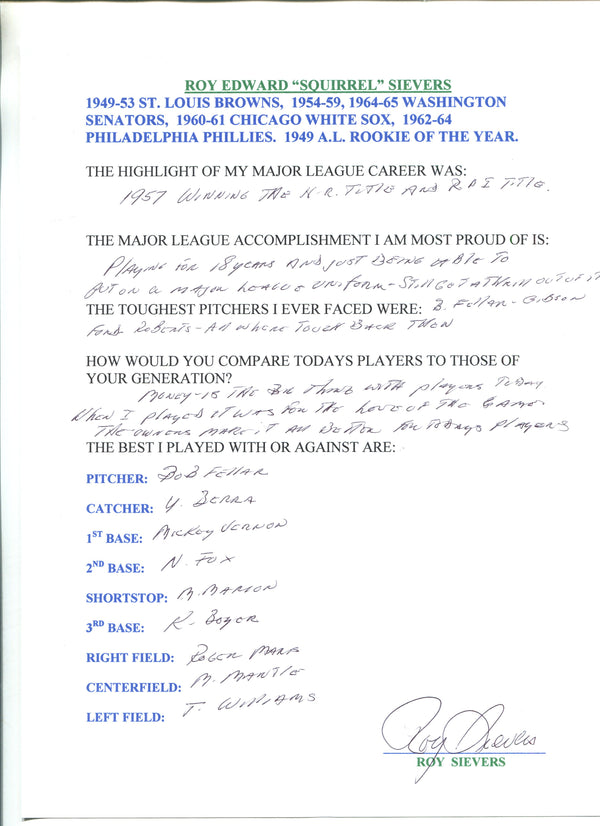 ROY EDWARD “SQUIRREL” SIEVERS
1949-53 ST. LOUIS BROWNS, 1954-59, 1964-65 WASHINGTON
SENATORS, 1960-61 CHICAGO WHITE SOX, 1962-64
PHILADELPHIA PHILLIES. 1949 A.L. ROOKIE OF THE YEAR.
THE HIGHLIGHT OF MY MAJOR LEAGUE CAREER WAS:
1957 WINNING THE H.R. TITLE AND RBI TITLE.
THE MAJOR LEAGUE ACCOMPLISHMENT I AM MOST PROUD OF IS:
PLAYING FOR 18 YEARS AND JUST BEING ABLE TO
PUT ON A MAJOR LEAGUE UNIFORM - STILL GOT A THRILL OUT OF IT
THE TOUGHEST PITCHERS I EVER FACED WERE: B. FELLAR - GIBSON
FORD ROBERTS - ALL WHERE TOUCH BACK THEN
HOW WOULD YOU COMPARE TODAYS PLAYERS TO THOSE OF
YOUR GENERATION?
MONEY - IS THE BIG THING WITH PLAYERS TODAY
WHEN I PLAYED IT WAS FOR THE LOVE OF THE GAME.
THE OWNERS MAKE IT ALL BETTER FOR TODAYS PLAYERS
THE BEST I PLAYED WITH OR AGAINST ARE:
PITCHER: BOB FELLAR
CATCHER: Y. BERRA
1ST BASE: MICKEY VERNON
2ND BASE: N. FOX
SHORTSTOP: M. MARION
3RD BASE: K. BOYER
RIGHT FIELD: ROGER MARIS
CENTERFIELD: M. MANTLE
LEFT FIELD: T. WILLIAMS
Roy Sievers
ROY SIEVERS